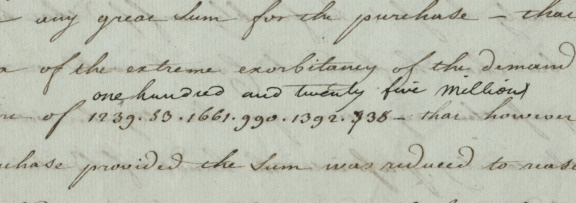 any great Sum for the purchase - that
of the extreme exorbitancy of the demand
one hundred and twenty five Millions
of 1239. 53. 1661. 990. 1392. 338 - that however
purchase provided the Sum was reduced to reas